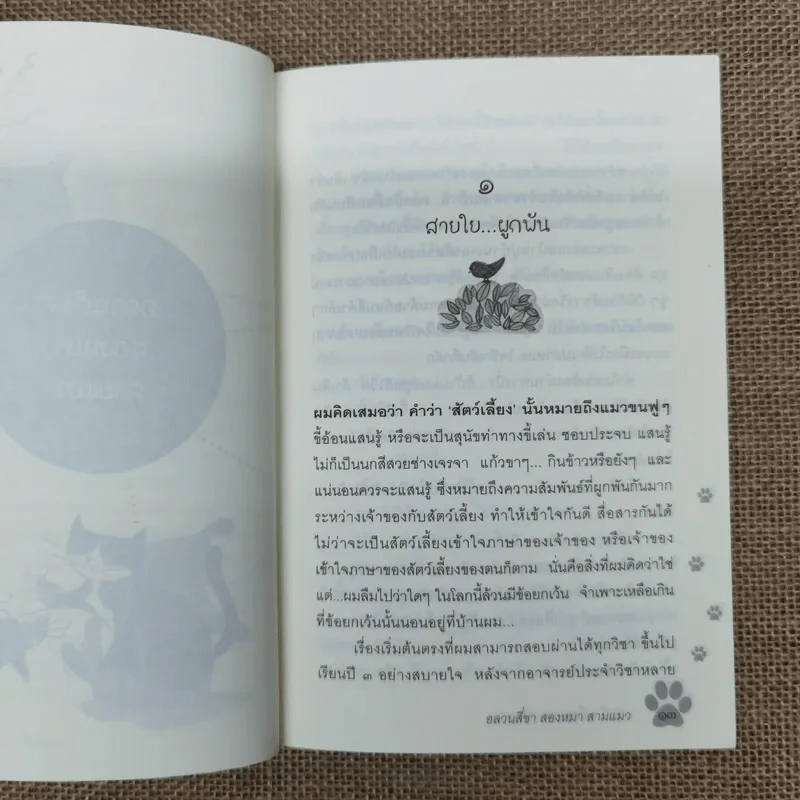 ๑
สายใย...ผูกพัน
ผมคิดเสมอว่า คำว่า ‘สัตว์เลี้ยง’ นั้นหมายถึงแมวขนฟูๆ
ขี้อ้อนแสนรู้ หรือจะเป็นสุนัขท่าทางขี้เล่น ชอบประจบ แสนรู้
ไม่ก็เป็นนกสีสวยช่างเจรจา แก้วขาๆ... กินข้าวหรือยังๆ และ
แน่นอนควรจะแสนรู้ ซึ่งหมายถึงความสัมพันธ์ที่ผูกพันกันมาก
ระหว่างเจ้าของกับสัตว์เลี้ยง ทำให้เข้าใจกันดี สื่อสารกันได้
ไม่ว่าจะเป็นสัตว์เลี้ยงเข้าใจภาษาของเจ้าของ หรือเจ้าของ
เข้าใจภาษาของสัตว์เลี้ยงของตนก็ตาม นั่นคือสิ่งที่ผมคิดว่าใช่
แต่...ผมลืมไปว่าใดๆ ในโลกนี้ล้วนมีข้อยกเว้น จำเพาะเหลือเกิน
ที่ข้อยกเว้นนั้นนอนอยู่ที่บ้านผม...
เรื่องเริ่มต้นตรงที่ผมสามารถสอบผ่านได้ทุกวิชา ขึ้นไป
เรียนปี ๓ อย่างสบายใจ หลังจากอาจารย์ประจำวิชาหลาย
อลวนสี่ขา สองหมา สามแมว
๑๓